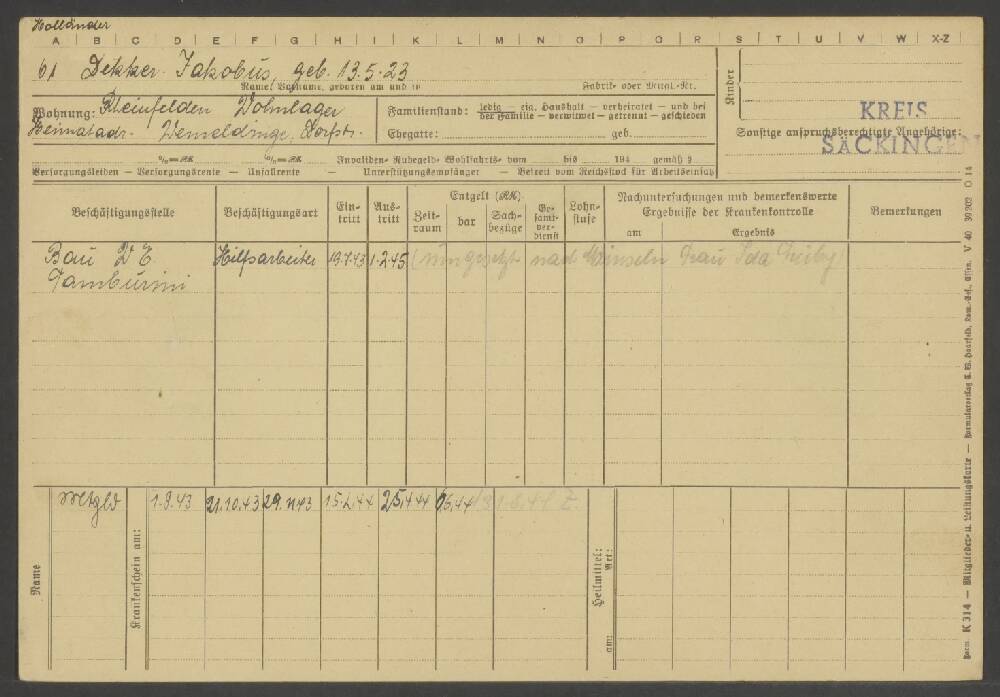 Holländer
A B C D E F G H I K L M N O P Q R S T U V W X-Z
61 Dekker Jakobus, geb. 13.5.23
Name, Vorname, geboren am und in
Fabrik- oder Personal-Nr.
Kinder
Wohnung: Rheinfelden Wohnlager
Heimatadr. Wemeldinge, Dorpstr.
Familienstand: ledig — eig. Haushalt — verheiratet — und bei
der Familie — verwitwet — getrennt — geschieden
Ehegatte: geb.
KREIS
Sonstige anspruchsberechtigte Angehörige:
SÄCKINGEN
%=RM %=RM Invaliden- Ruhegeld- Wohlfahrts- vom bis 194 gemäß §
Versorgungsleiden — Versorgungsrente — Unfallrente — Unterstützungsempfänger — Befreit vom Reichsstock für Arbeitseinsatz
Beschäftigungsstelle
Beschäftigungsart
Ein-
tritt
Aus-
tritt
Entgelt (RM)
Zeit-
raum
bar
Sach-
bezüge
Ge-
samt-
ver-
dienst
Lohn-
stufe
Nachuntersuchungen und bemerkenswerte
Ergebnisse der Krankenkontrolle
am Ergebnis
Bemerkungen
Bau
Hilfsarbeiter 19.7.43 1.2.45 (umgesetzt nach Minseln Frau Ida
Tamburini
Name
Krankenschein am:
1.9.43 21.10.43 29.11.43 15.2.44 25.4.44
Heilmittel:
Art:
am:
Form. K 314 — Mitglieder- u. Leistungskarte — Formularverlag C. W. Haarfeld, Kom.-Ges., Essen. V 40 30202 O 14